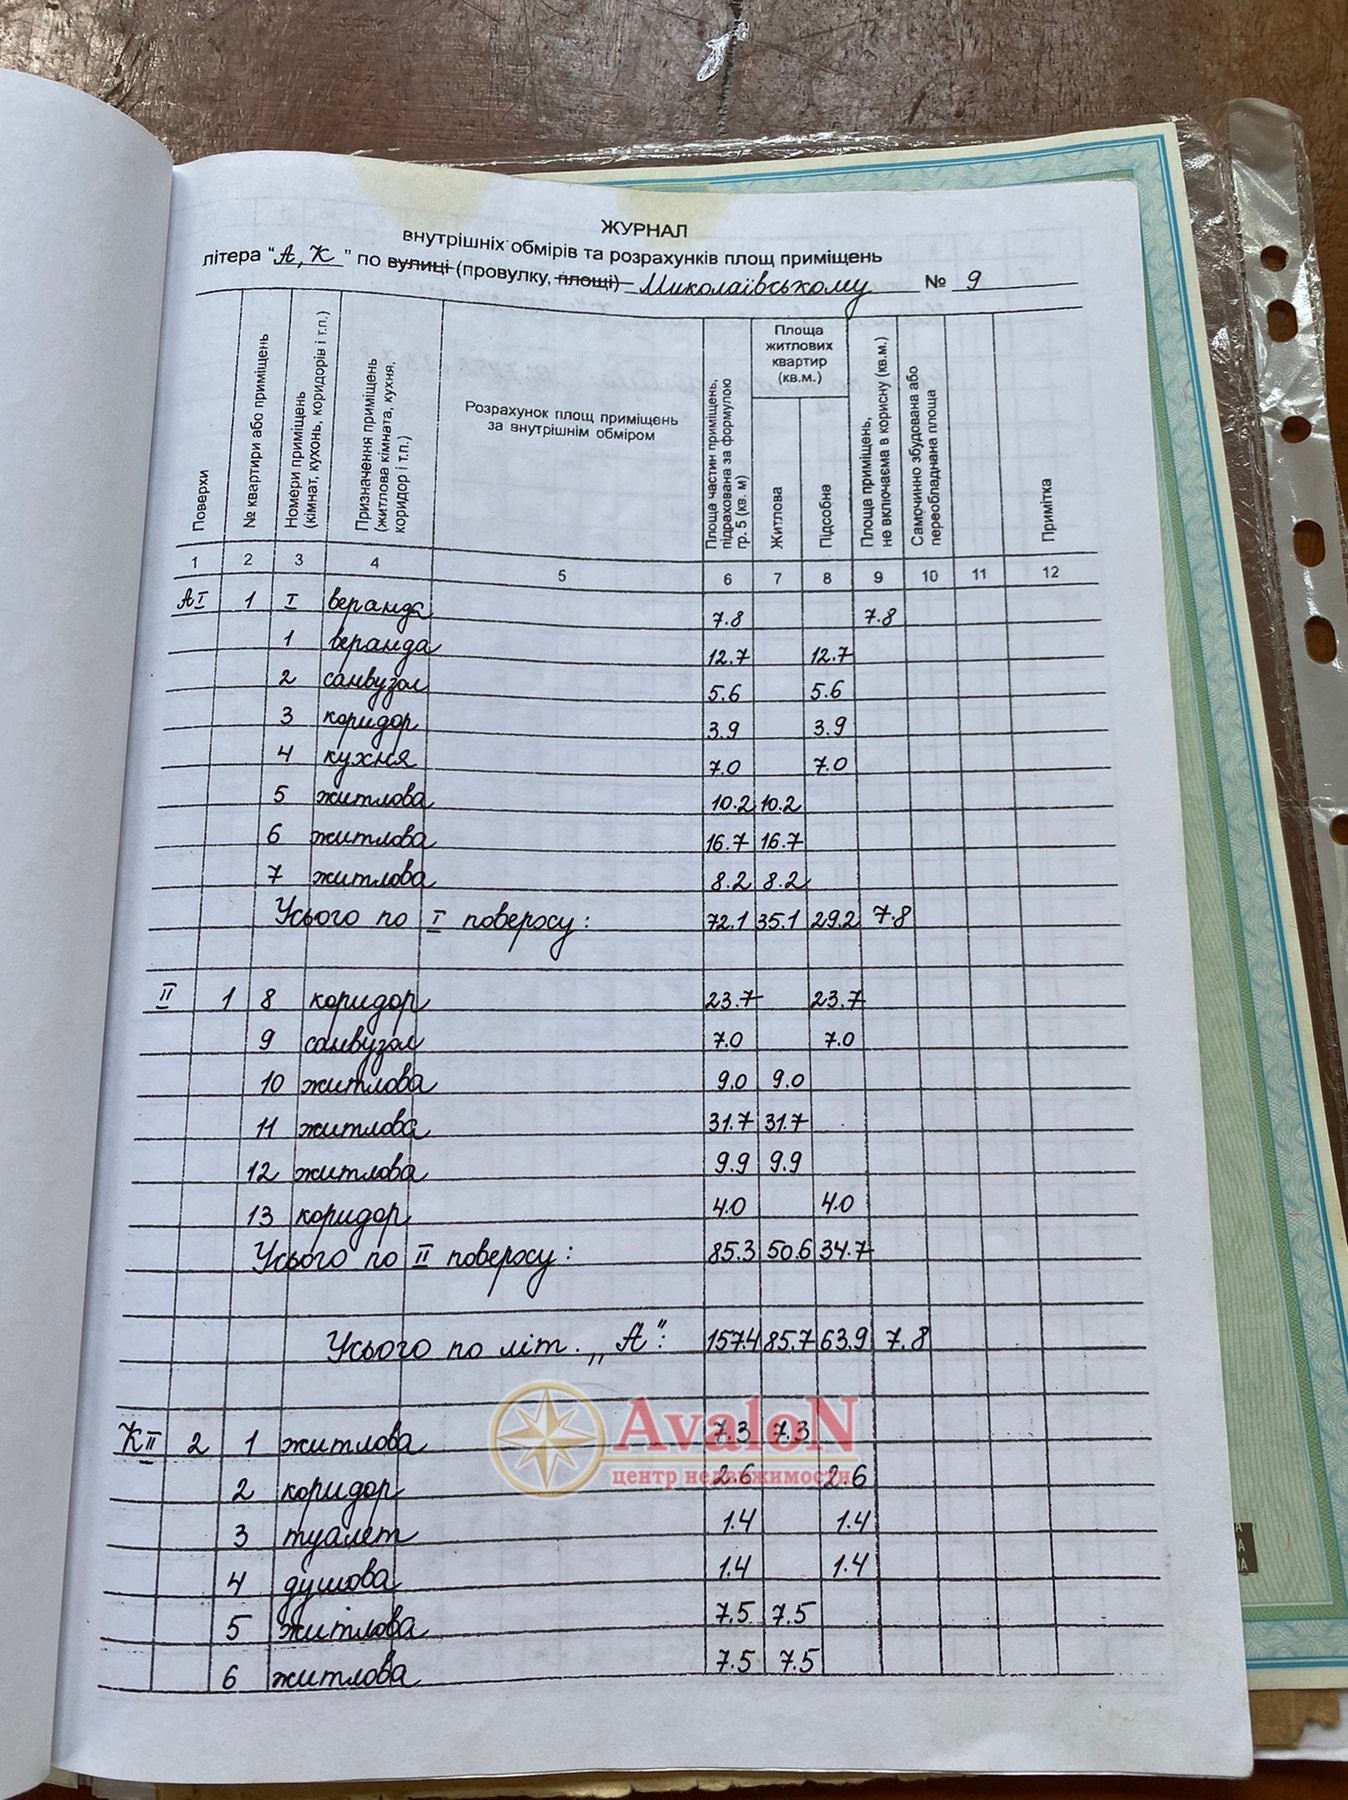 ЖУРНАЛ
внутрішніх обмірів та розрахунків площ приміщень
літера "А, К" по вулиці (провулку, площі) Миколаївському № 9
Поверхи
№ квартири або приміщень
Номери приміщень (кімнат, кухонь, коридорів і т.п.)
Призначення приміщень (житлова кімната, кухня, коридор і т.п.)
Розрахунок площ приміщень за внутрішнім обміром
Площа частин приміщень, підрахована за формулою гр. 5 (кв. м)
Площа житлових квартир (кв.м.)
Житлова
Підсобна
Площа приміщень, не включаєма в корисну (кв.м.)
Самочинно збудована або переобладнана площа
Примітка
1 2 3 4 5 6 7 8 9 10 11 12
АI 1 I веранда 7.8 7.8
1 веранда 12.7 12.7
2 санвузол 5.6 5.6
3 коридор 3.9 3.9
4 кухня 7.0 7.0
5 житлова 10.2 10.2
6 житлова 16.7 16.7
7 житлова 8.2 8.2
Усього по I поверху: 72.1 35.1 29.2 7.8
II 1 8 коридор 23.7 23.7
9 санвузол 7.0 7.0
10 житлова 9.0 9.0
11 житлова 31.7 31.7
12 житлова 9.9 9.9
13 коридор 4.0 4.0
Усього по II поверху: 85.3 50.6 34.7
Усього по літ. „А": 157.4 85.7 63.9 7.8
КII 2 1 житлова 7.3 7.3
AvaloN
центр недвижимости
2 коридор 2.6 2.6
3 туалет 1.4 1.4
4 душова 1.4 1.4
5 житлова 7.5 7.5
6 житлова 7.5 7.5